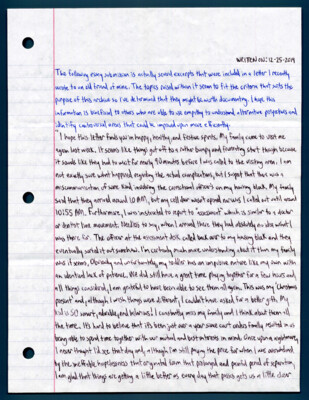 WRITTEN ON: 12-25-2019
The following essay submission is actually several excerpts that were included in a letter I recently
wrote to an old friend of mine. The topics raised within it seem to fit the criteria that sets the
purpose of this archive so I've determined that they might be worth documenting. I hope this
information is beneficial to others who are able to use empathy to understand alternative perspectives and
identify areas that could be improved upon more efficiently.
I hope this letter finds you in happy, healthy, and festive spirits. My family came to visit me
again last week. It seems like things got off to a rather bumpy and start though because
it sounds like they had to wait for nearly 90 minutes before I was called to the visiting area. I am
not exactly sure what happened regarding the actual complication, but I suspect that there was a
miscommunication of some kind involving the correctional officers on my housing block. My family
said that they arrived around 10 AM, but my cell door wasn't opened until
10:55 AM. Furthermore, I was instructed to report to "assessment" which is similar to a doctor
or dentist line movement. Needless to say, when I arrived there they had absolutely no idea what I
was there for. The officer at the assessment desk called back over to my housing block and they
eventually worked it out somehow. I'm certainly much more understanding about it than my family
was it seems. Obviously and unfortunately, my is an impulsive creature like my own with
an identical lack of patience. We did still have a great time playing together for a few hours and
all things considered, I am grateful to have been able to see them all again. This was my Christmas
present and, although I wish things were different, I couldn't have asked for a better gift. My
kid is SO smart, adorable, and hilarious! I constantly miss my family and I think about them all
the time. It's hard to believe that it's been just over a year since court orders finally resulted in us
being able to spend time together with our mutual and best interests in mind. Once upon a nightmare,
I never thought I'd see that day and, although I'm still paying the price for when I was surrounded
by the ineffable hopelessness that originated from that prolonged and painful period of separation,
I am glad that things are getting a little better as every day that passes gets us a little closer